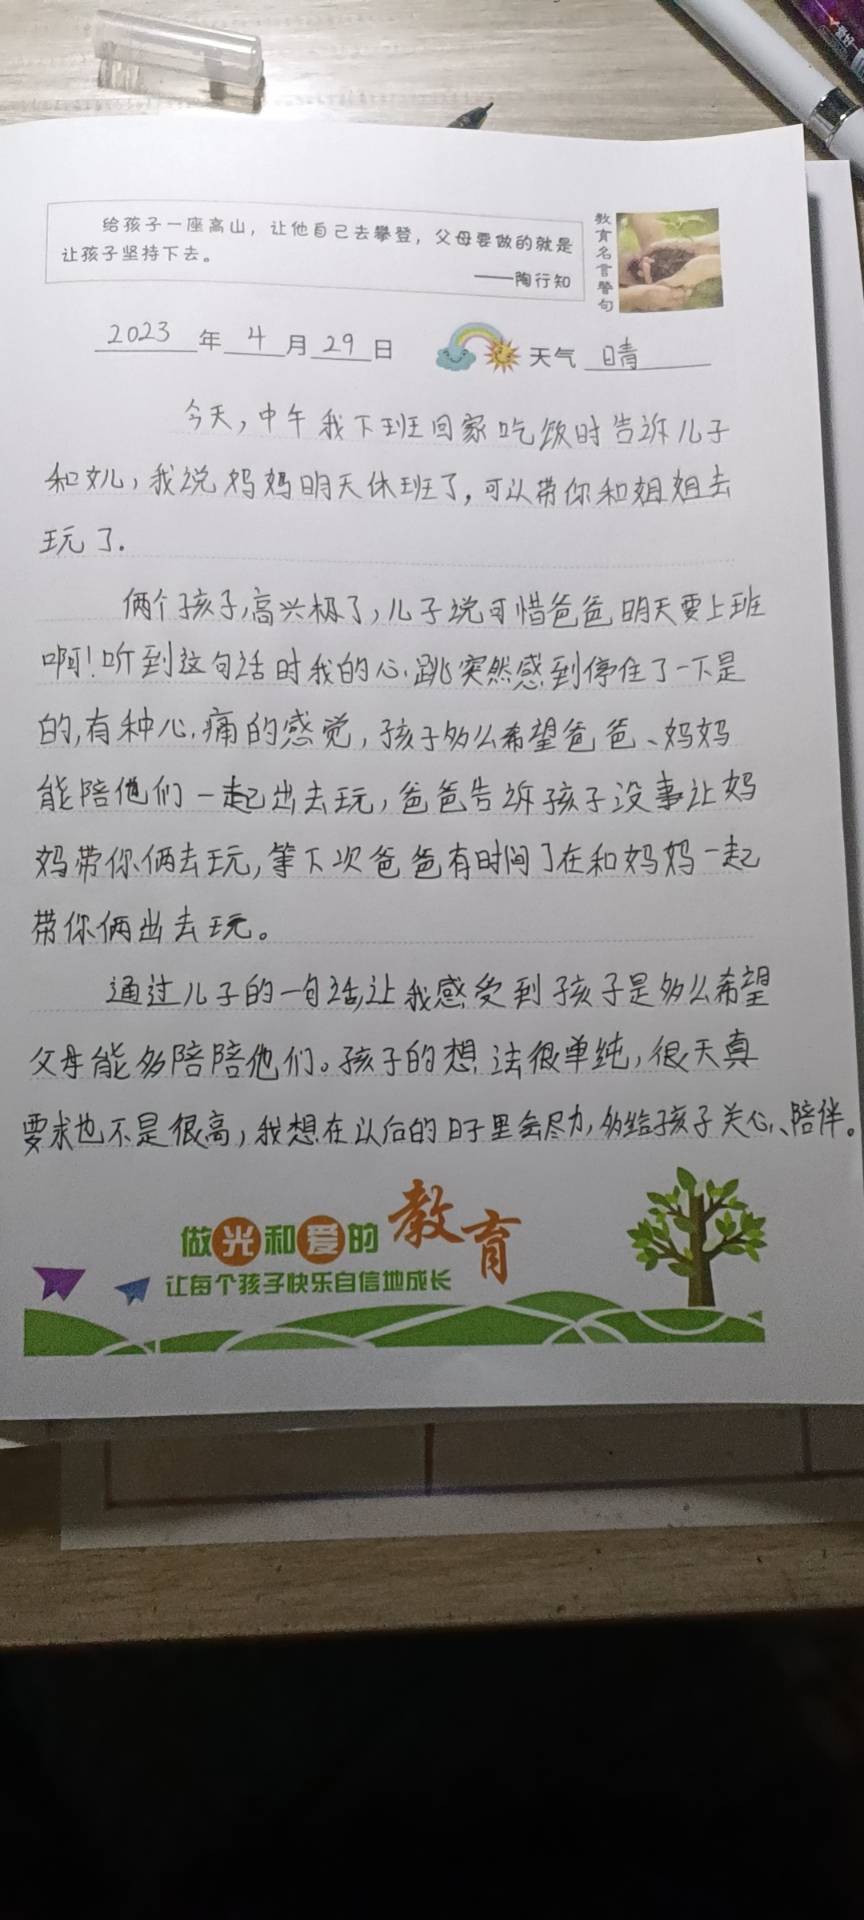 给孩子一座高山，让他自己去攀登，父母要做的就是
让孩子坚持下去。
——陶行知
教育名言警句
2023年4月29日 天气 晴
今天,中午我下班回家吃饭时告诉儿子
和女儿,我说妈妈明天休班了,可以带你和姐姐去
玩了.
俩个孩子,高兴极了,儿子说可惜爸爸明天要上班
啊!听到这句话时我的心跳突然感到停住了一下是
的,有种心痛的感觉,孩子多么希望爸爸、妈妈
能陪他们一起出去玩,爸爸告诉孩子没事让妈
妈带你俩去玩,等下次爸爸有时间了在和妈妈一起
带你俩出去玩。
通过儿子的一句话,让我感受到孩子是多么希望
父母能多陪陪他们。孩子的想法很单纯,很天真
要求也不是很高,我想在以后的日子里会尽力,多给孩子关心、陪伴。
做光和爱的教育
让每个孩子快乐自信地成长